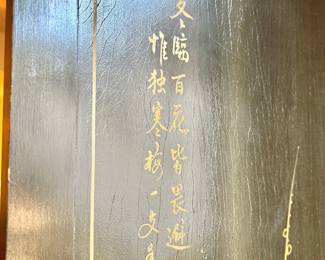 冬临百花皆畏避
惟独寒梅一支